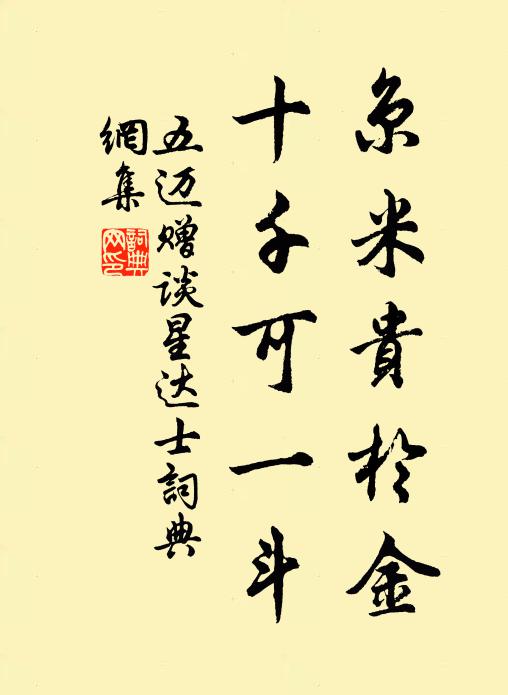 京米貴於金
十千可一斗
五迈赠谈星达士詞典
網集
詞典
网印